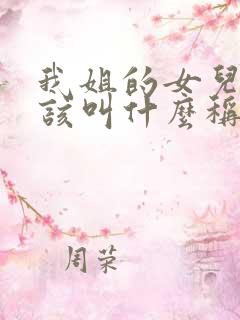 我姐的女兒
該叫什麼稱
周荣